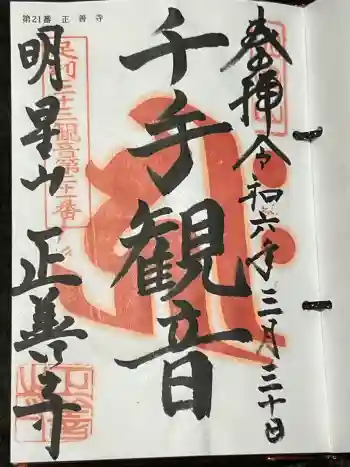 第21番 正善寺
奉拝 令和六年三月三十日
千手観音
足利三十三観音第二十一番
明星山 正善寺